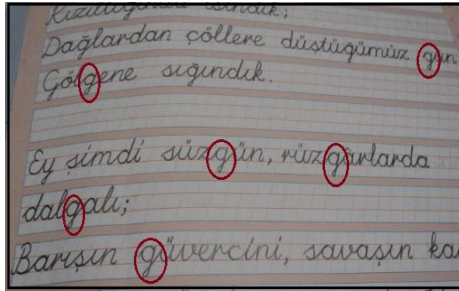 Kızıllığında ısındık;
Dağlardan çöllere düştüğümüz gün
Gölgene sığındık.
Ey şimdi süzgün, rüzgârlarda
dalgalı;
Barışın güvercini, savaşın ka